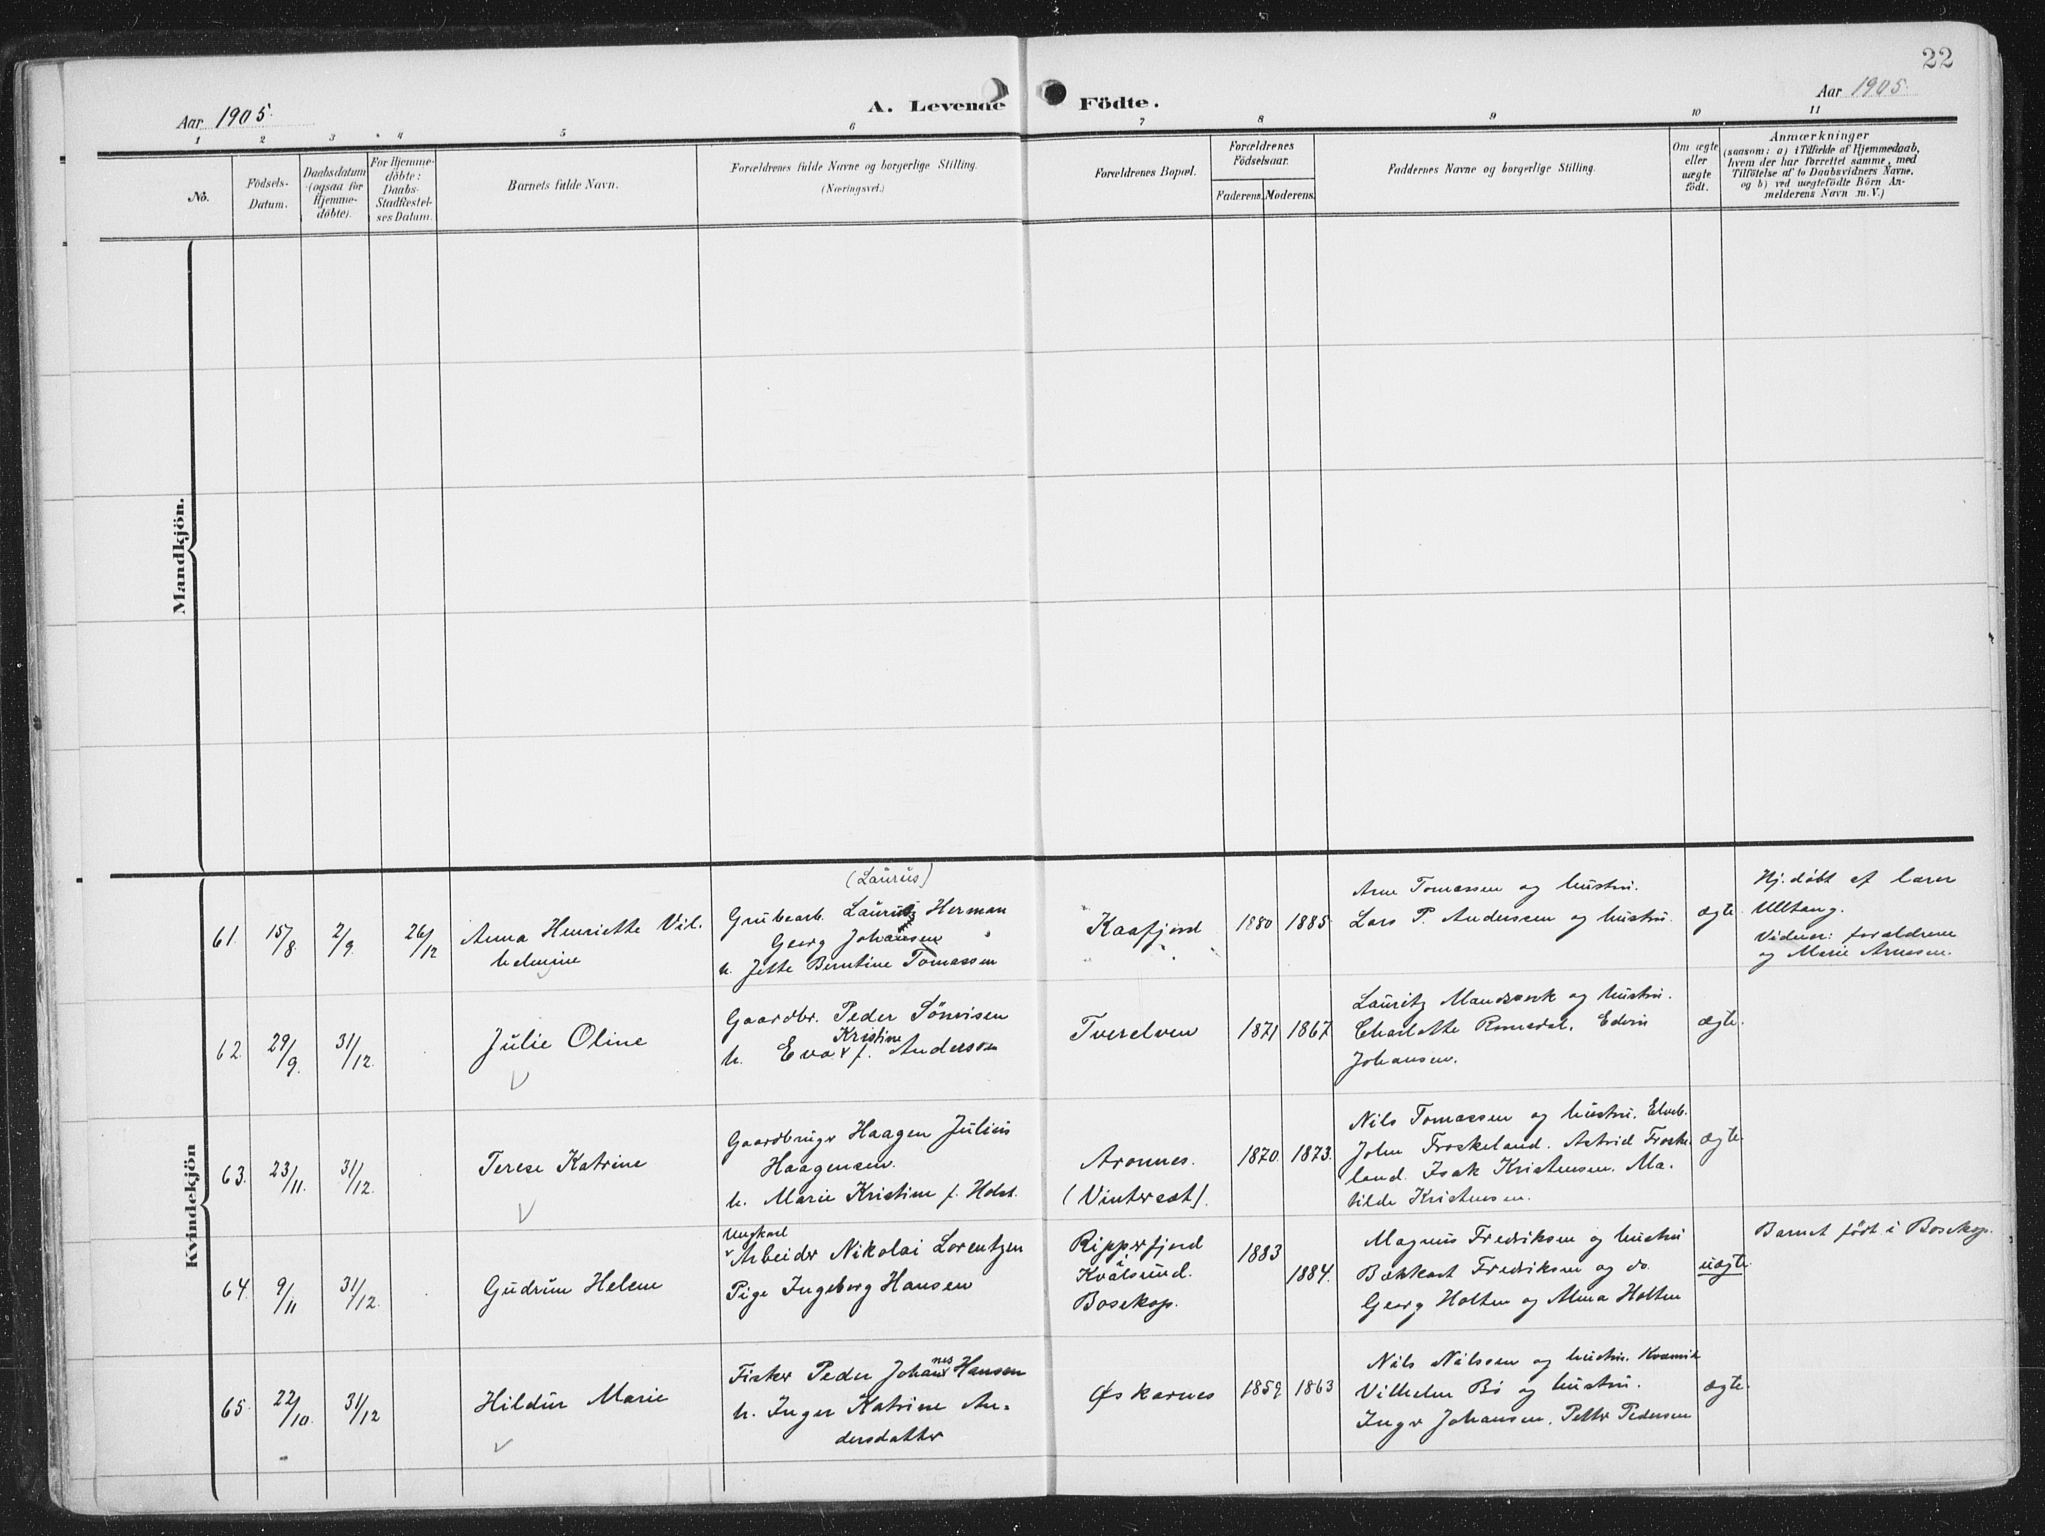 22
Aar 1905.
A. Levende Födte.
Aar 1905.
1 2 3 4 5 6 7 8 9 10 11
No.
Födsels-
Datum.
Daabsdatum
(ogsaa for
Hjemme-
döbte).
For Hjemme-
döbte:
Daabs-
Stadfæstel-
ses Datum.
Barnets fulde Navn.
Forældrenes fulde Navne og borgerlige Stilling.
(Næringsvei.)
Forældrenes Bopæl.
Forældrenes
Födselsaar.
Faderens. Moderens.
Faddernes Navne og borgerlige Stilling.
Om ægte
eller
uægte
födt.
Anmærkninger
(saasom: a) i Tilfælde af Hjemmedaab,
hvem der har forrettet samme, med
Tilföielse af to Daabsvidners Navne,
og b) ved uægtefödte Börn An-
melderens Navn m. V.)
Mandkjön.
Kvindekjön
61. 15/8. 2/9. 26/12
Anna Henriette Vil.
helmine
(Laurus)
Grubearb. Lauritz Herman
Georg Johansen
h. Jette Berntine Tomassen
Kaafjord
1880 1885.
Arne Tomassen og hustru.
Lars P. Anderssen og hustru.
ægte.
Hj. döbt af lærer
Ulltang.
Vidner: forældrene
og Marie Arnesen.
62. 29/9. 31/12.
Julie Oline
Gaardbr. Peder Sönvisen
Kristine
h. Eva f. Anderson
Tverelven
1871 1867.
Lauritz Mandsverk og hustru.
Charlotte Romsdal. Edvin
Johansen.
ægte.
63. 23/11. 31/12.
Terese Katrine
Gaardbruger Haagen Julius
Haagensen.
h. Marie Kristine f. Holst.
Aronnes.
(Vintersæt).
1870. 1873.
Nils Tomassen og hustru. Elveb.
John Froskeland. Astrid Froske
land. Isak Kristensen. Ma.
tilde Kristensen.
ægte
64. 9/11 31/12.
Gudrun Helene
Ungkarl
Arbeider Nikolai Lorentzen
Pige Ingeborg Hansen
Ripperfjord
i
Kvalsund.
Bosekop.
1883
1884.
Magnus Fredriksen og hustru
Fredriksen og do.
Georg Holten og Alma Holten
uægte.
Barnet födt i Bosekop.
65. 22/10. 31/12
Hildur Marie
Fisker Peder Johannes Hansen
h. Inger Katrine An-
dersdatter
Øskarnes
1859 1863
Nils Nilssen og hustru. Kvænvik
Vilhelm Bö og hustru.
Inger Johansen. Petter Pedersen
ægte.